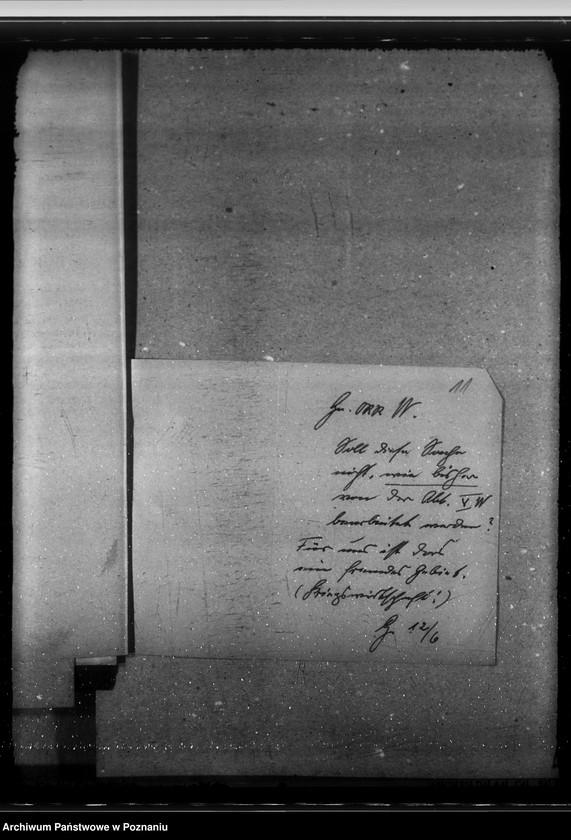 11
Hr. ORR W.
Soll diese Sache
nicht, wie bisher
von der Abt. V W
bearbeitet werden?
Für uns ist das
ein fremdes Gebiet.
(Kriegswirtschaft!)
12/6
Archiwum Państwowe w Poznaniu